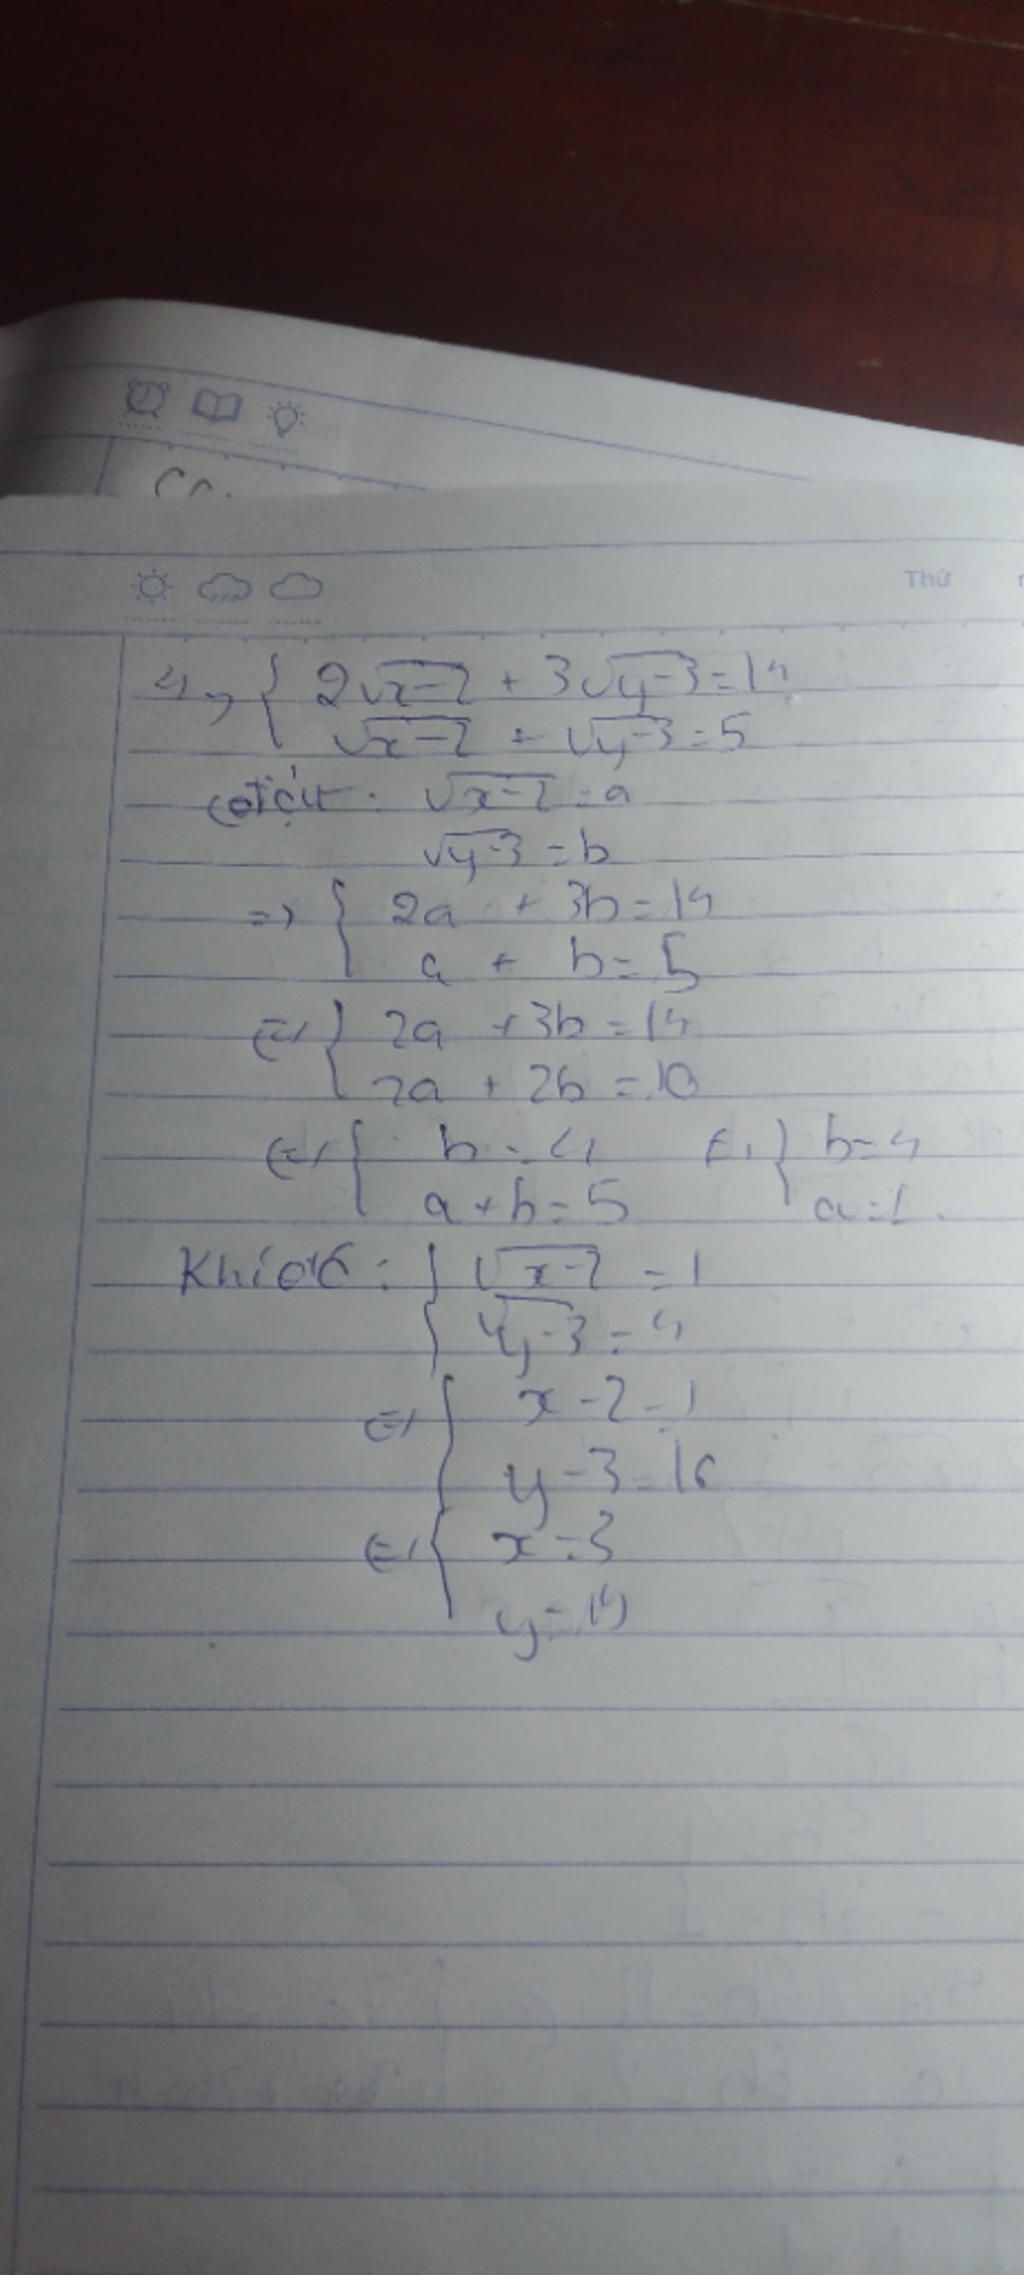 Thứ
4, { 2√x-2 + 3√y-3 = 14
√x-2 + √y-3 = 5
Đặt: √x-2 = a
√y-3 = b
=> { 2a + 3b = 14
a + b = 5
<=> { 2a + 3b = 14
2a + 2b = 10
<=> { b = 4 <=> { b = 4
a + b = 5 a = 1.
Khi đó: { √x-2 = 1
√y-3 = 4
<=> { x - 2 = 1
y - 3 = 16
<=> { x = 3
y = 19